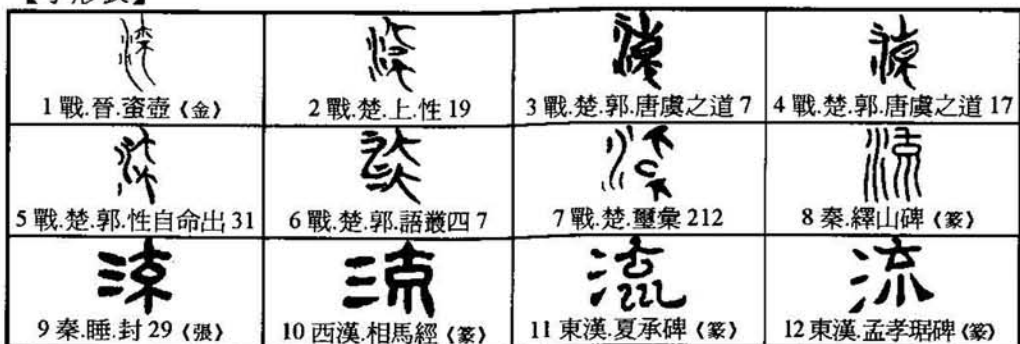 1 戰.晉.𧊒壺《金》
2 戰.楚.上.性 19
3 戰.楚.郭.唐虞之道 7
4 戰.楚.郭.唐虞之道 17
5 戰.楚.郭.性自命出 31
6 戰.楚.郭.語叢四 7
7 戰.楚.璽彙 212
8 秦.繹山碑《篆》
9 秦.睡.封 29《張》
10 西漢.相馬經《篆》
11 東漢.夏承碑《篆》
流
12 東漢.孟孝琚碑《篆》